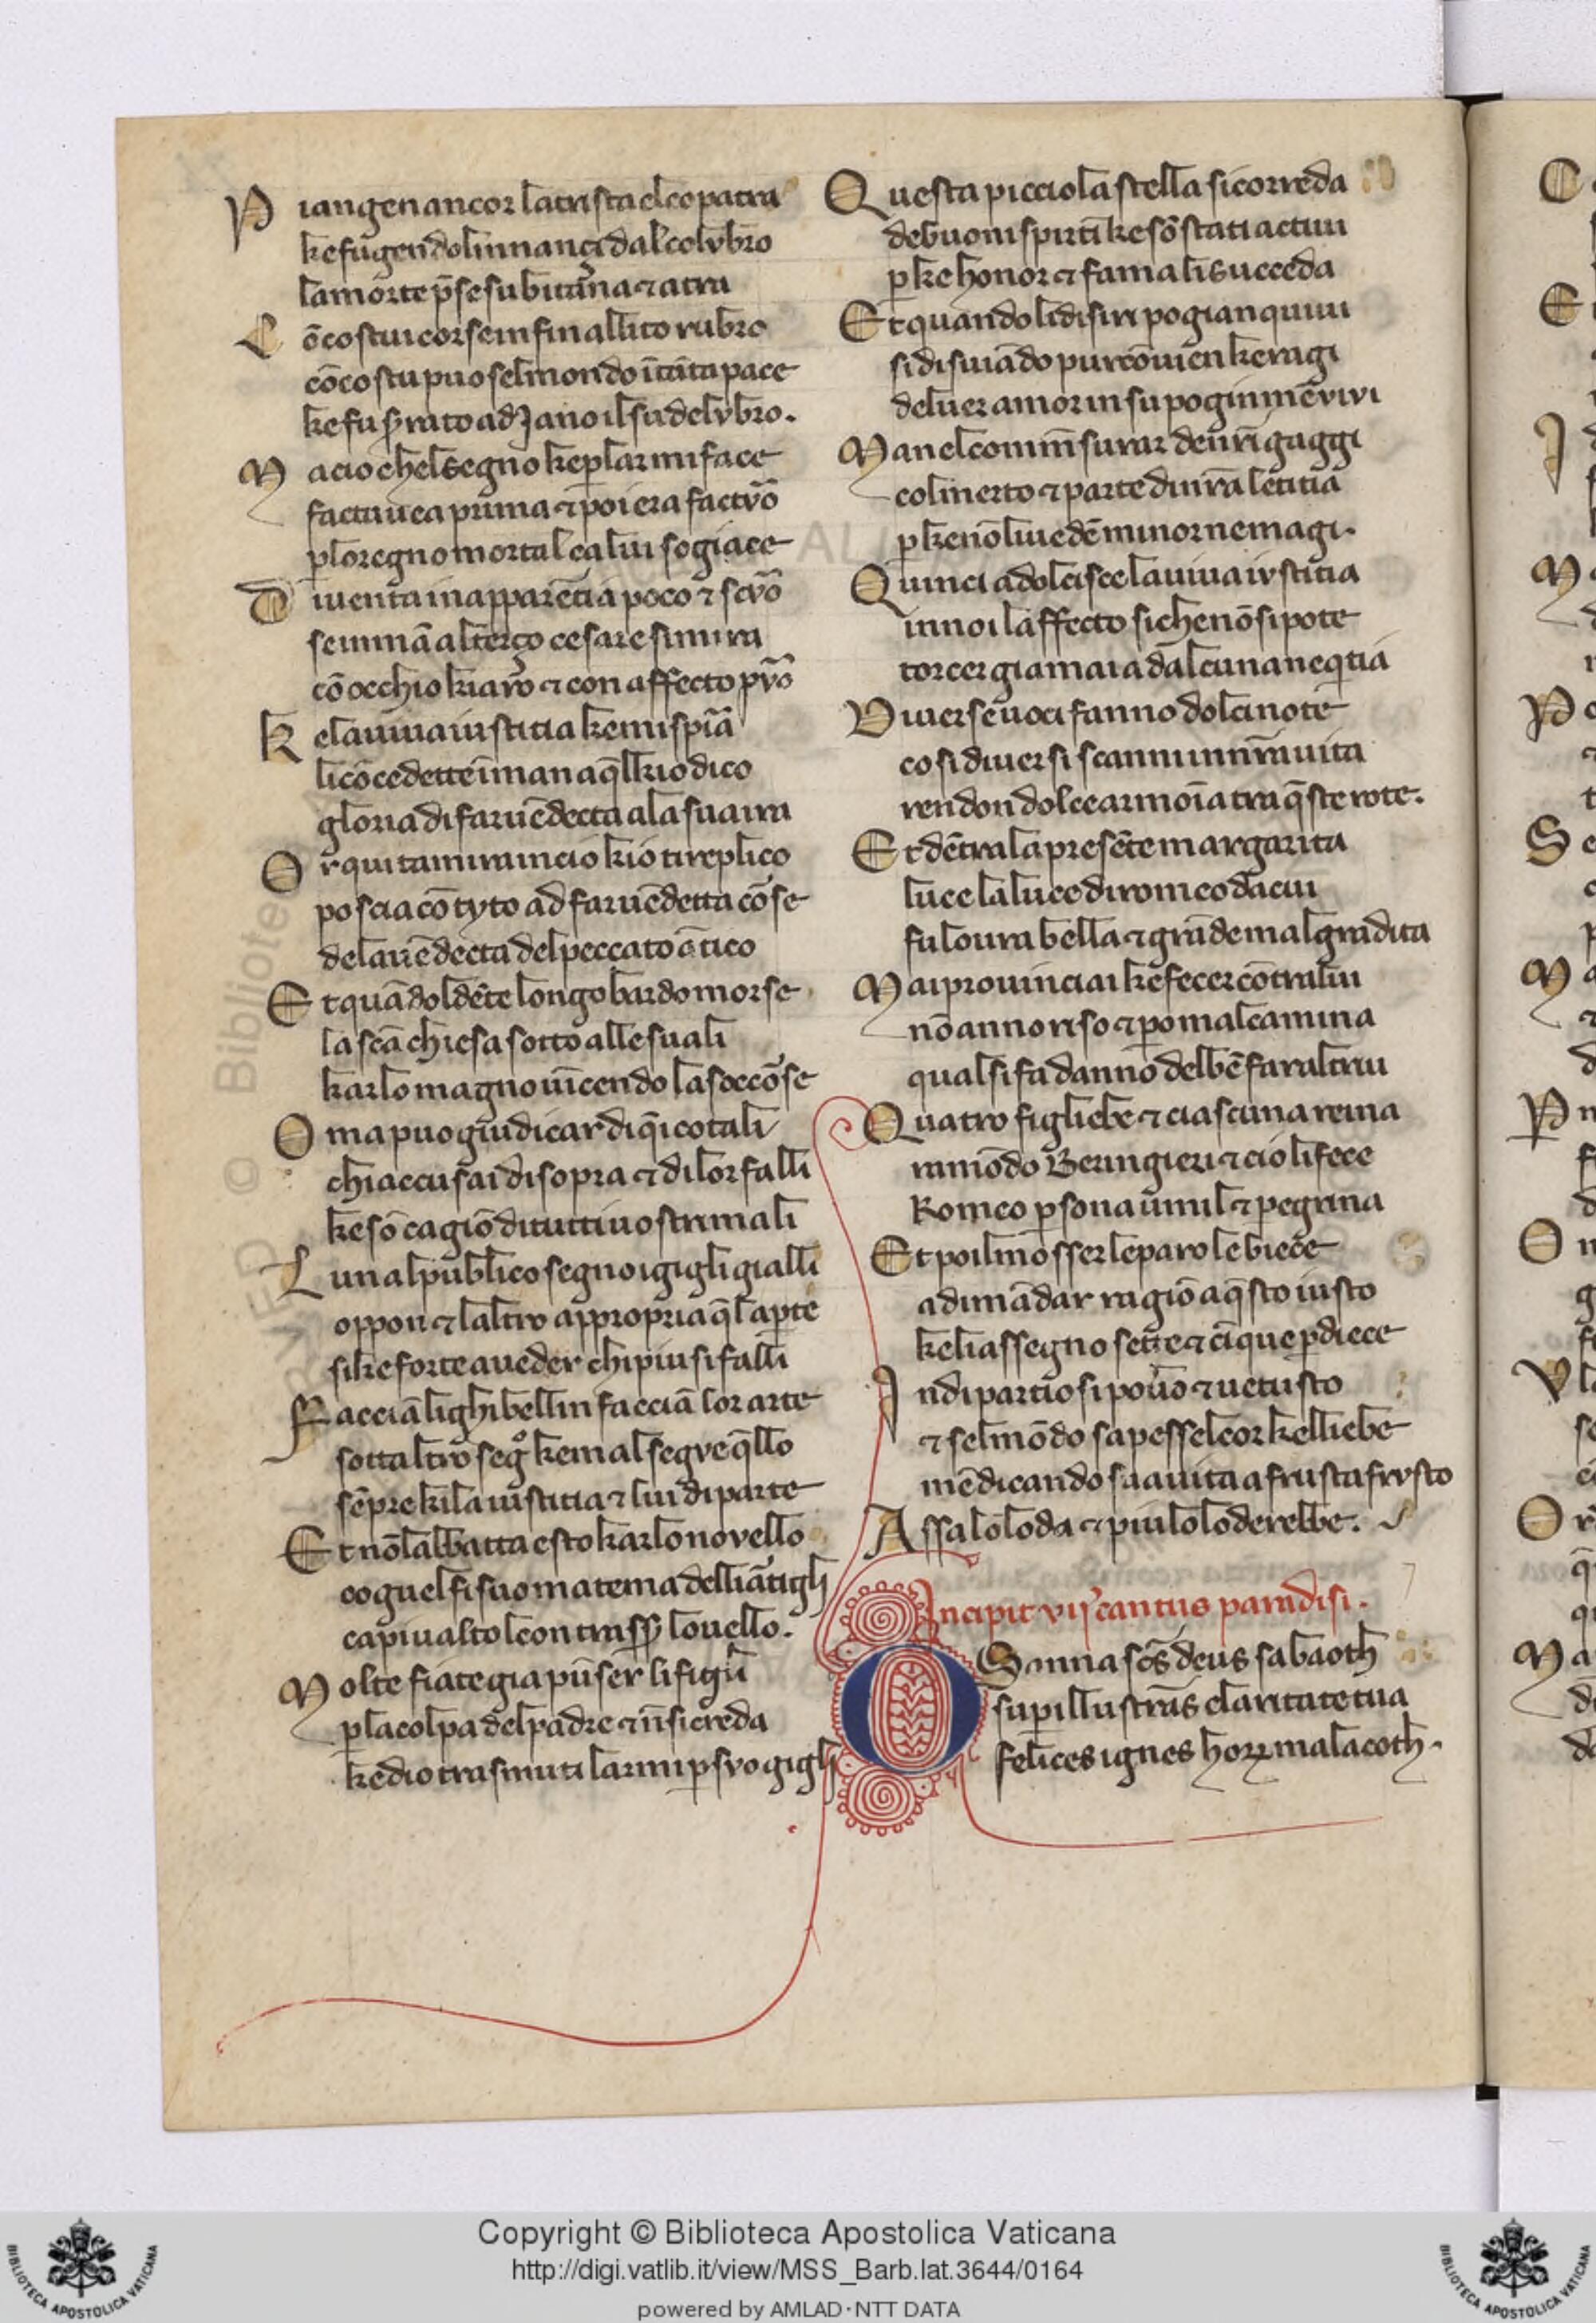 Piangen ancor la trista cleopatra
ke fugendolinnançi dal colvbro
la morte p̄se subitana ⁊ atra
Cō costui corse infin allito rubro
cō costui puose lmondo ītāta pace
ke fu serrato ad Jano il su delvbro.
Ma cio chel segno ke parlar mi face
facto avea prima ⁊ poi era factvro
plo regno mortal ca lui sogiace
Diventa in apparēcia poco ⁊ scvro
se in mā al terço cesare si mira
cō occhio kiaro ⁊ con affecto pvro
Ke la viva iustitia ke mi spira
li cōcedette ī man a q̄l kio dico
gloria di far vēdecta a la sua ira
Or qui tamira in cio kio ti replico
poscia cō tyto ad far vēdetta corse
de la vēdecta del peccato ātico
Et quādol dēte longobardo morse
la scā chiesa sotto alle su ali
karlo magno vīcendo la soccorse
Oma puo giudicar di q̄i cotali
chi accusai di sopra ⁊ di lor falli
ke sō cagiō di tutti vostri mali
Lun al publico segno i gigli gialli
oppon ⁊ laltro appropria q̄l a parte
si ke forte a veder chi piu si falli
Facciā li ghibellin facciā lor arte
sott altro segno ke mal segve q̄llo
sēpre ki la iustitia ⁊ lui diparte
Et nō labbatta esto karlo novello
co guelfi suo ma tema delli ātigli
ca piu alto leon trasser lo vello.
Molte fiate gia pianser li figli
p la colpa del padre ⁊ nō si creda
ke dio trasmuti larmi p svo gigli
Questa picciola stella si correda
de buoni spirti ke sō stati activi
p ke honor ⁊ fama li succeda
Et quando li disiri pogian quivi
si disviādo pur cōvien ke ragi
del ver amor in su pogin mē vivi
Ma nel commēsurar de nr̄i gaggi
col merto ⁊ parte di nr̄a letitia
p ke nō li vedē minor ne magi.
Quinci adolcisce la viva ivstitia
in noi laffecto si che nō si pote
torcer giamai ad alcuna neq̄tia
Diverse voci fanno dolci note
cosi diversi scanni in nr̄a vita
rendon dolce armoīa tra q̄ste rote.
Et dētra la presēte margarita
luce la luce di romeo da cui
fu loura bella ⁊ grāde mal gradita
Ma i provinciai ke fecer cōtra lui
nō anno riso ⁊ pero mal camina
qual si fa danno del bē far altrui
Quatro figlie be ⁊ ciascuna reina
ramōdo Beringieri ⁊ cio li fece
Romeo psona ūmil ⁊ pegrina
Et poi il mosser le parole biece
a dimādar ragiō a q̄sto iusto
ke li assegno sette ⁊ cīque p diece
Indi partiosi povero ⁊ vetusto
⁊ sel mōdo sapesse l cor kelli ebe
mēdicando sua vita a frusta frvsto
Assai lo loda ⁊ piu lo loderebbe.
Incipit vij cantus paradisi.
OSanna scs̄ deus sabaoth
supillustrās claritate tua
felices ignes horꝝ malacoth.
Copyright © Biblioteca Apostolica Vaticana
http://digi.vatlib.it/view/MSS_Barb.lat.3644/0164
powered by AMLAD·NTT DATA